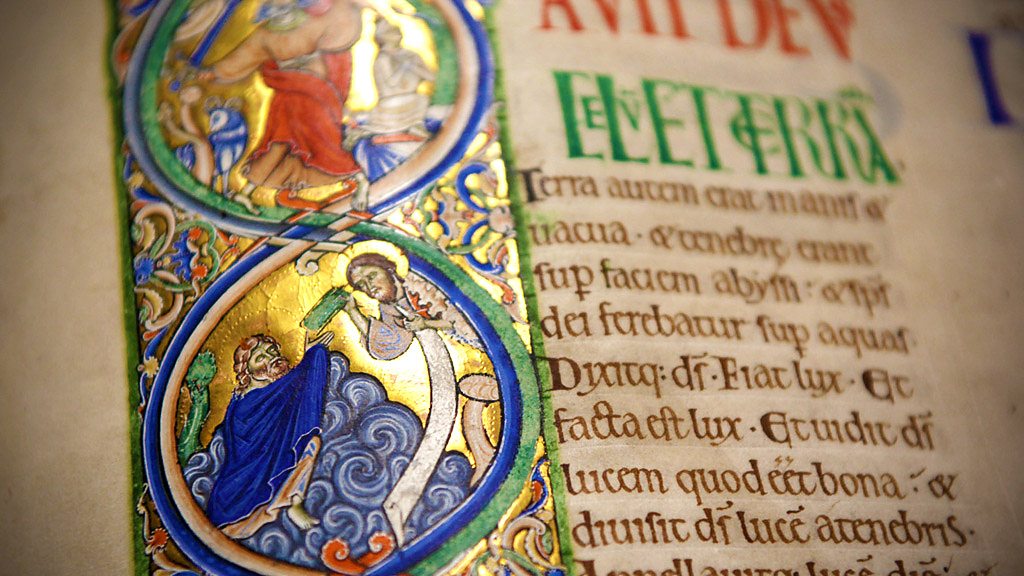 AVIT DEVS
CELV̄ ET TERRA.
Terra autem erat inanis &
uacua · & tenebrę erant
suꝑ faciem abyssi : & sp̄s
dei ferebatur suꝑ aquas
Dixitq: d̄s · Fiat lux · Et
facta est lux · Et uidit d̄s
lucem quod eēt bona : &
diuisit d̄s lucē a tenebris ·
Appellauitq: lucē